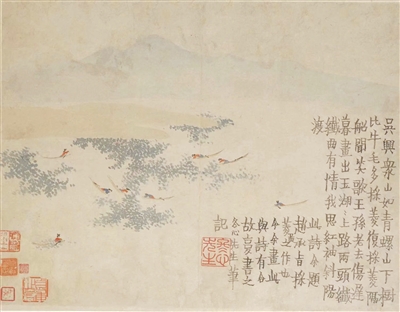 吳興衆山如青螺山下樹
比牛毛多採菱復採菱隔
船聞笑歌王孫老去傷遲
暮畫出玉湖湖上路兩頭纖
纖曲有情我思紅袖斜陽
渡
此詩余題
趙承旨採
菱圖作也
今余畫此
與詩有合
故書之
冬心先生筆
記